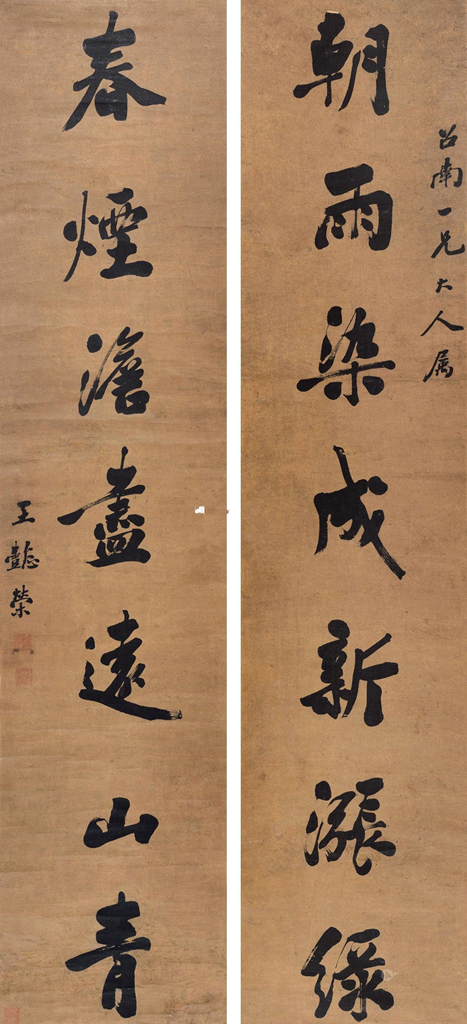 吕南一兄大人属
朝雨染成新漲綠
春煙澹盡遠山青
王懿榮